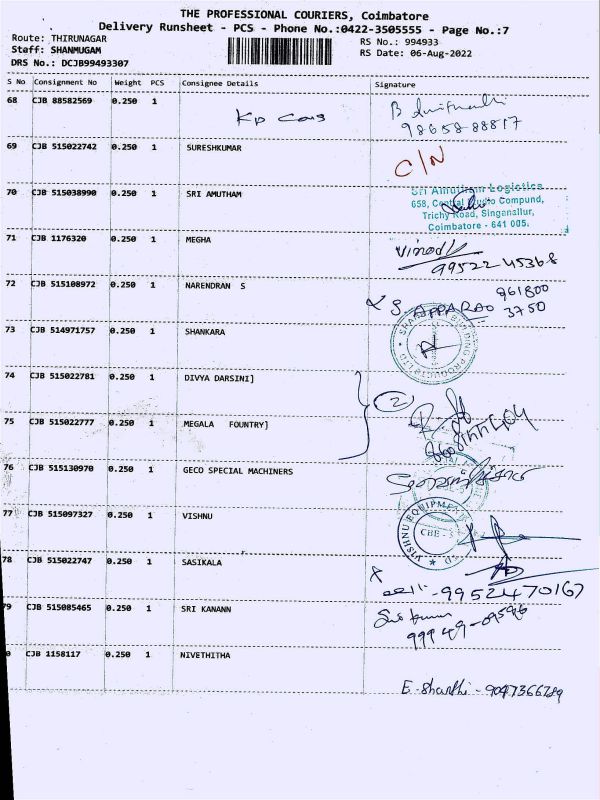 THE PROFESSIONAL COURIERS, Coimbatore
Delivery Runsheet - PCS - Phone No.:0422-3505555 - Page No.:7
Route: THIRUNAGAR
RS No.: 994933
Staff: SHANMUGAM
RS Date: 06-Aug-2022
DRS No.: DCJB99493307
S No Consignment No Weight PCS Consignee Details Signature
68 CJB 88582569 0.250 1 Kp Cars
98658-88817
69 CJB 515022742 0.250 1 SURESHKUMAR C/N
70 CJB 515038990 0.250 1 SRI AMUTHAM
Sri Amutham Logistics
658, Central Studio Compund,
Trichy Road, Singanallur,
Coimbatore - 641 005.
71 CJB 1176320 0.250 1 MEGHA Vinod
99522 45368
72 CJB 515108972 0.250 1 NARENDRAN S
961800
S. APPARAO 3750
73 CJB 514971757 0.250 1 SHANKARA
74 CJB 515022781 0.250 1 DIVYA DARSINI]
2
75 CJB 515022777 0.250 1 MEGALA FOUNTRY]
76 CJB 515130970 0.250 1 GECO SPECIAL MACHINERS
77 CJB 515097327 0.250 1 VISHNU
VISHNU EQUIPMENT
CBE - 3
78 CJB 515022747 0.250 1 SASIKALA
cell - 9952470167
79 CJB 515085465 0.250 1 SRI KANANN
99949-09596
CJB 1158117 0.250 1 NIVETHITHA
E. Shanthi - 9047366289